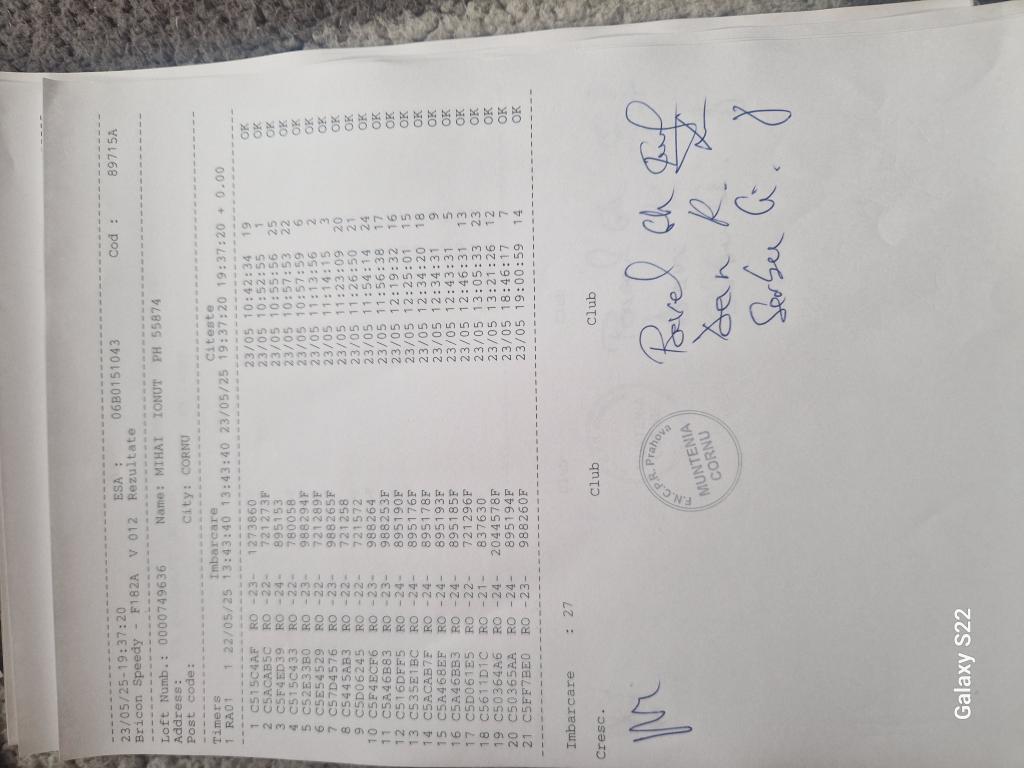 23/05/25-19:37:20 ESA : 06B0151043 Cod : 89715A
Bricon Speedy - F182A V 012 Rezultate
Loft Numb.: 0000749636 Name: MIHAI IONUT PH 55874
Address:
Post code: City: CORNU
Timers Imbarcare Citeste
1 RA01 1 22/05/25 13:43:40 13:43:40 23/05/25 19:37:20 19:37:20 + 0.00
1 C515C4AF RO -23- 1273860 23/05 10:42:34 19 OK
2 C5ACAB5C RO -22- 721273F 23/05 10:52:55 1 OK
3 C5F4ED39 RO -24- 895153 23/05 10:55:56 25 OK
4 C515C433 RO -22- 780058 23/05 10:57:53 22 OK
5 C52E33B0 RO -23- 988294F 23/05 10:57:59 6 OK
6 C5E54529 RO -22- 721289F 23/05 11:13:56 2 OK
7 C57D4576 RO -23- 988265F 23/05 11:14:15 3 OK
8 C5445AB3 RO -22- 721258 23/05 11:23:09 20 OK
9 C5D06245 RO -22- 721572 23/05 11:26:50 21 OK
10 C5F4ECF6 RO -23- 988264 23/05 11:54:14 24 OK
11 C5A46B83 RO -23- 988253F 23/05 11:56:38 17 OK
12 C516DFF5 RO -24- 895190F 23/05 12:19:32 16 OK
13 C535E1BC RO -24- 895176F 23/05 12:25:01 15 OK
14 C5ACAB7F RO -24- 895178F 23/05 12:34:20 18 OK
15 C5A468EF RO -24- 895193F 23/05 12:34:31 9 OK
16 C5A46BB3 RO -24- 895185F 23/05 12:43:31 5 OK
17 C5D061E5 RO -22- 721296F 23/05 12:46:31 13 OK
18 C5611D1C RO -21- 837630 23/05 13:05:33 23 OK
19 C50364A6 RO -24- 2044578F 23/05 13:21:26 12 OK
20 C50365AA RO -24- 895194F 23/05 18:46:17 7 OK
21 C5FF7BE0 RO -23- 988260F 23/05 19:00:59 14 OK
Imbarcare : 27
Cresc. Club Club
F.N.C.P.R. Prahova
MUNTENIA
CORNU
Pavel Gh
Dan R.
Serban G.
Galaxy S22